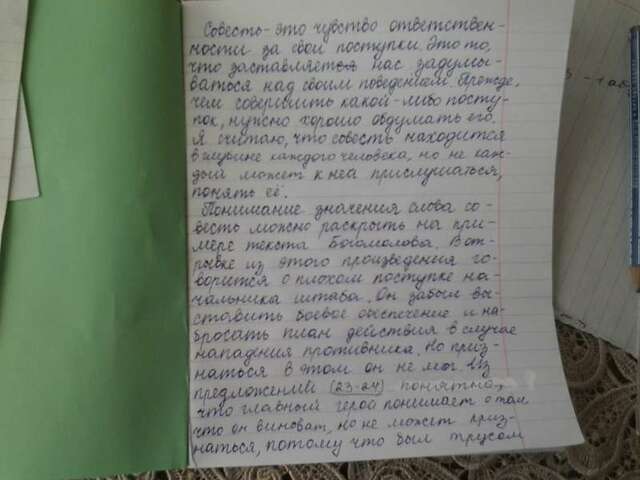 Совесть - это чувство ответствен-
ности за свои поступки. Это то,
что заставляется нас задумы-
ваться над своим поведением. Прежде,
чем совершить какой-либо посту-
пок, нужно хорошо обдумать его.
Я считаю, что совесть находится
в глубине каждого человека, но не каж-
дый может к неа прислушаться,
понять её.
Понимание значения слова со-
весть можно раскрыть на при-
мере текста Богомолова. В от-
рывке из этого произведения го-
ворится о плохом поступке на-
чальника штаба. Он забыл вы-
ставить боевое обеспечение и на-
бросать план действия в случае
нападения противника. Но приз-
наться в этом он не мог. Из
предложений (23-24) понятно,
что главный герой понимает о том
что он виноват, но не может приз-
наться, потому что был трусом